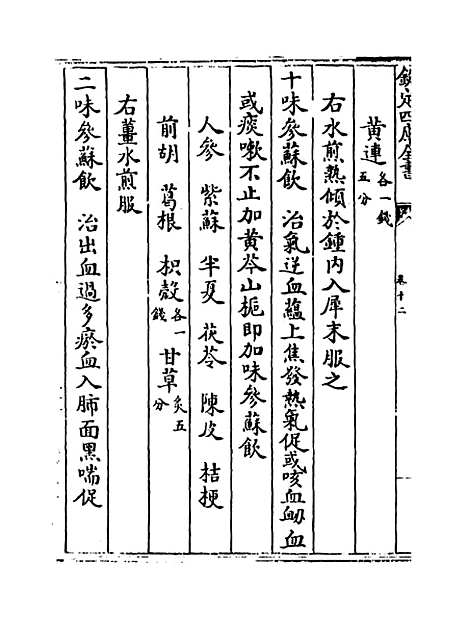 欽定四庫全書
卷十二
黄連各一錢五分
右水煎熟傾於鍾内入犀末服之
十味參蘇飲　治氣逆血蘊上焦發熱氣促或咳血衂血
或痰嗽不止加黄芩山梔即加味參蘇飲
人參　紫蘇　半夏　茯苓　陳皮　桔梗
前胡　葛根　枳殼各一錢　甘草炙五分
右薑水煎服
二味參蘇飲　治出血過多瘀血入肺面黑喘促